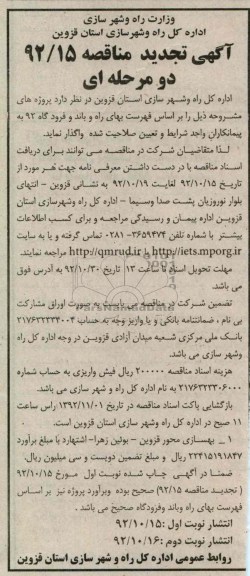 وزارت راه وشهر سازی
اداره کل راه وشهرسازی استان قزوین
آگهی تجدید مناقصه ۹۲/۱۵
دو مرحله ای
اداره کل راه وشهر سازی استان قزوین در نظر دارد پروژه های
مشروحه ذیل را بر اساس فهرست بهای راه و باند و فرود گاه ۹۲ به
پیمانکاران واجد شرایط و تعیین صلاحیت شده واگذار نماید.
لذا متقاضیان شرکت در مناقصه می توانند برای دریافت
اسناد مناقصه با در دست داشتن معرفی نامه جهت هر مورد از
تاریخ ۹۲/۱۰/۱۵ لغایت ۹۲/۱۰/۱۹ به نشانی قزوین - انتهای
بلوار نوروزیان پشت صدا وسیما - اداره کل راه وشهرسازی استان
قزوین اداره پیمان و رسیدگی مراجعه و برای کسب اطلاعات
بیشتر با شماره تلفن ۳۶۵۹۳۷۴-۰۲۸۱ تماس گرفته و یا به سایت
http://iets.mporg.ir یا http://qmrud.ir مراجعه نمایند.
مهلت تحویل اسناد تا ساعت ۱۳ تاریخ ۹۲/۱۰/۳۰ به آدرس فوق
می باشد
تضمین شرکت در مناقصه می بایست به صورت اوراق مشارکت
بی نام ، ضمانتنامه بانکی و یا واریز وجه به حساب ۲۱۷۶۲۲۳۳۴۰۰۴
بانک ملی مرکزی شعبه میدان آزادی قزوین در وجه اداره کل راه
وشهر سازی می باشد.
هزینه اسناد مناقصه ۲۰۰۰۰۰ ریال فیش واریزی به حساب شماره
۲۱۷۶۲۲۳۳۰۶۰۰۰ به نام اداره کل راه و شهر سازی می باشد.
بازگشایی پاکت اسناد مناقصه در تاریخ ۱۳۹۲/۱۱/۰۱ راس ساعت
۱۱ صبح در اداره کل راه وشهر سازی استان قزوین است.
۱_ بهسازی محور قزوین - بوئین زهرا- اشتهارد با مبلغ برآورد
۲۲۴۱۵۱۹۱۸۴۷ ریال و مبلغ تضمین دویست و سی میلیون ریال.
ضمنا در آگهی چاپ شده نوبت اول مورخ ۹۲/۱۰/۱۵
( تجدید مناقصه ۹۲/۱۵) صحیح بوده وبرآورد پروژه نیز بر اساس
فهرست بهای راه وباند وفرودگاه صحیح می باشد .
انتشار نوبت اول :۹۲/۱۰/۱۵
انتشار نوبت دوم :۹۲/۱۰/۱۶
روابط عمومی اداره کل راه و شهر سازی استان قزوین